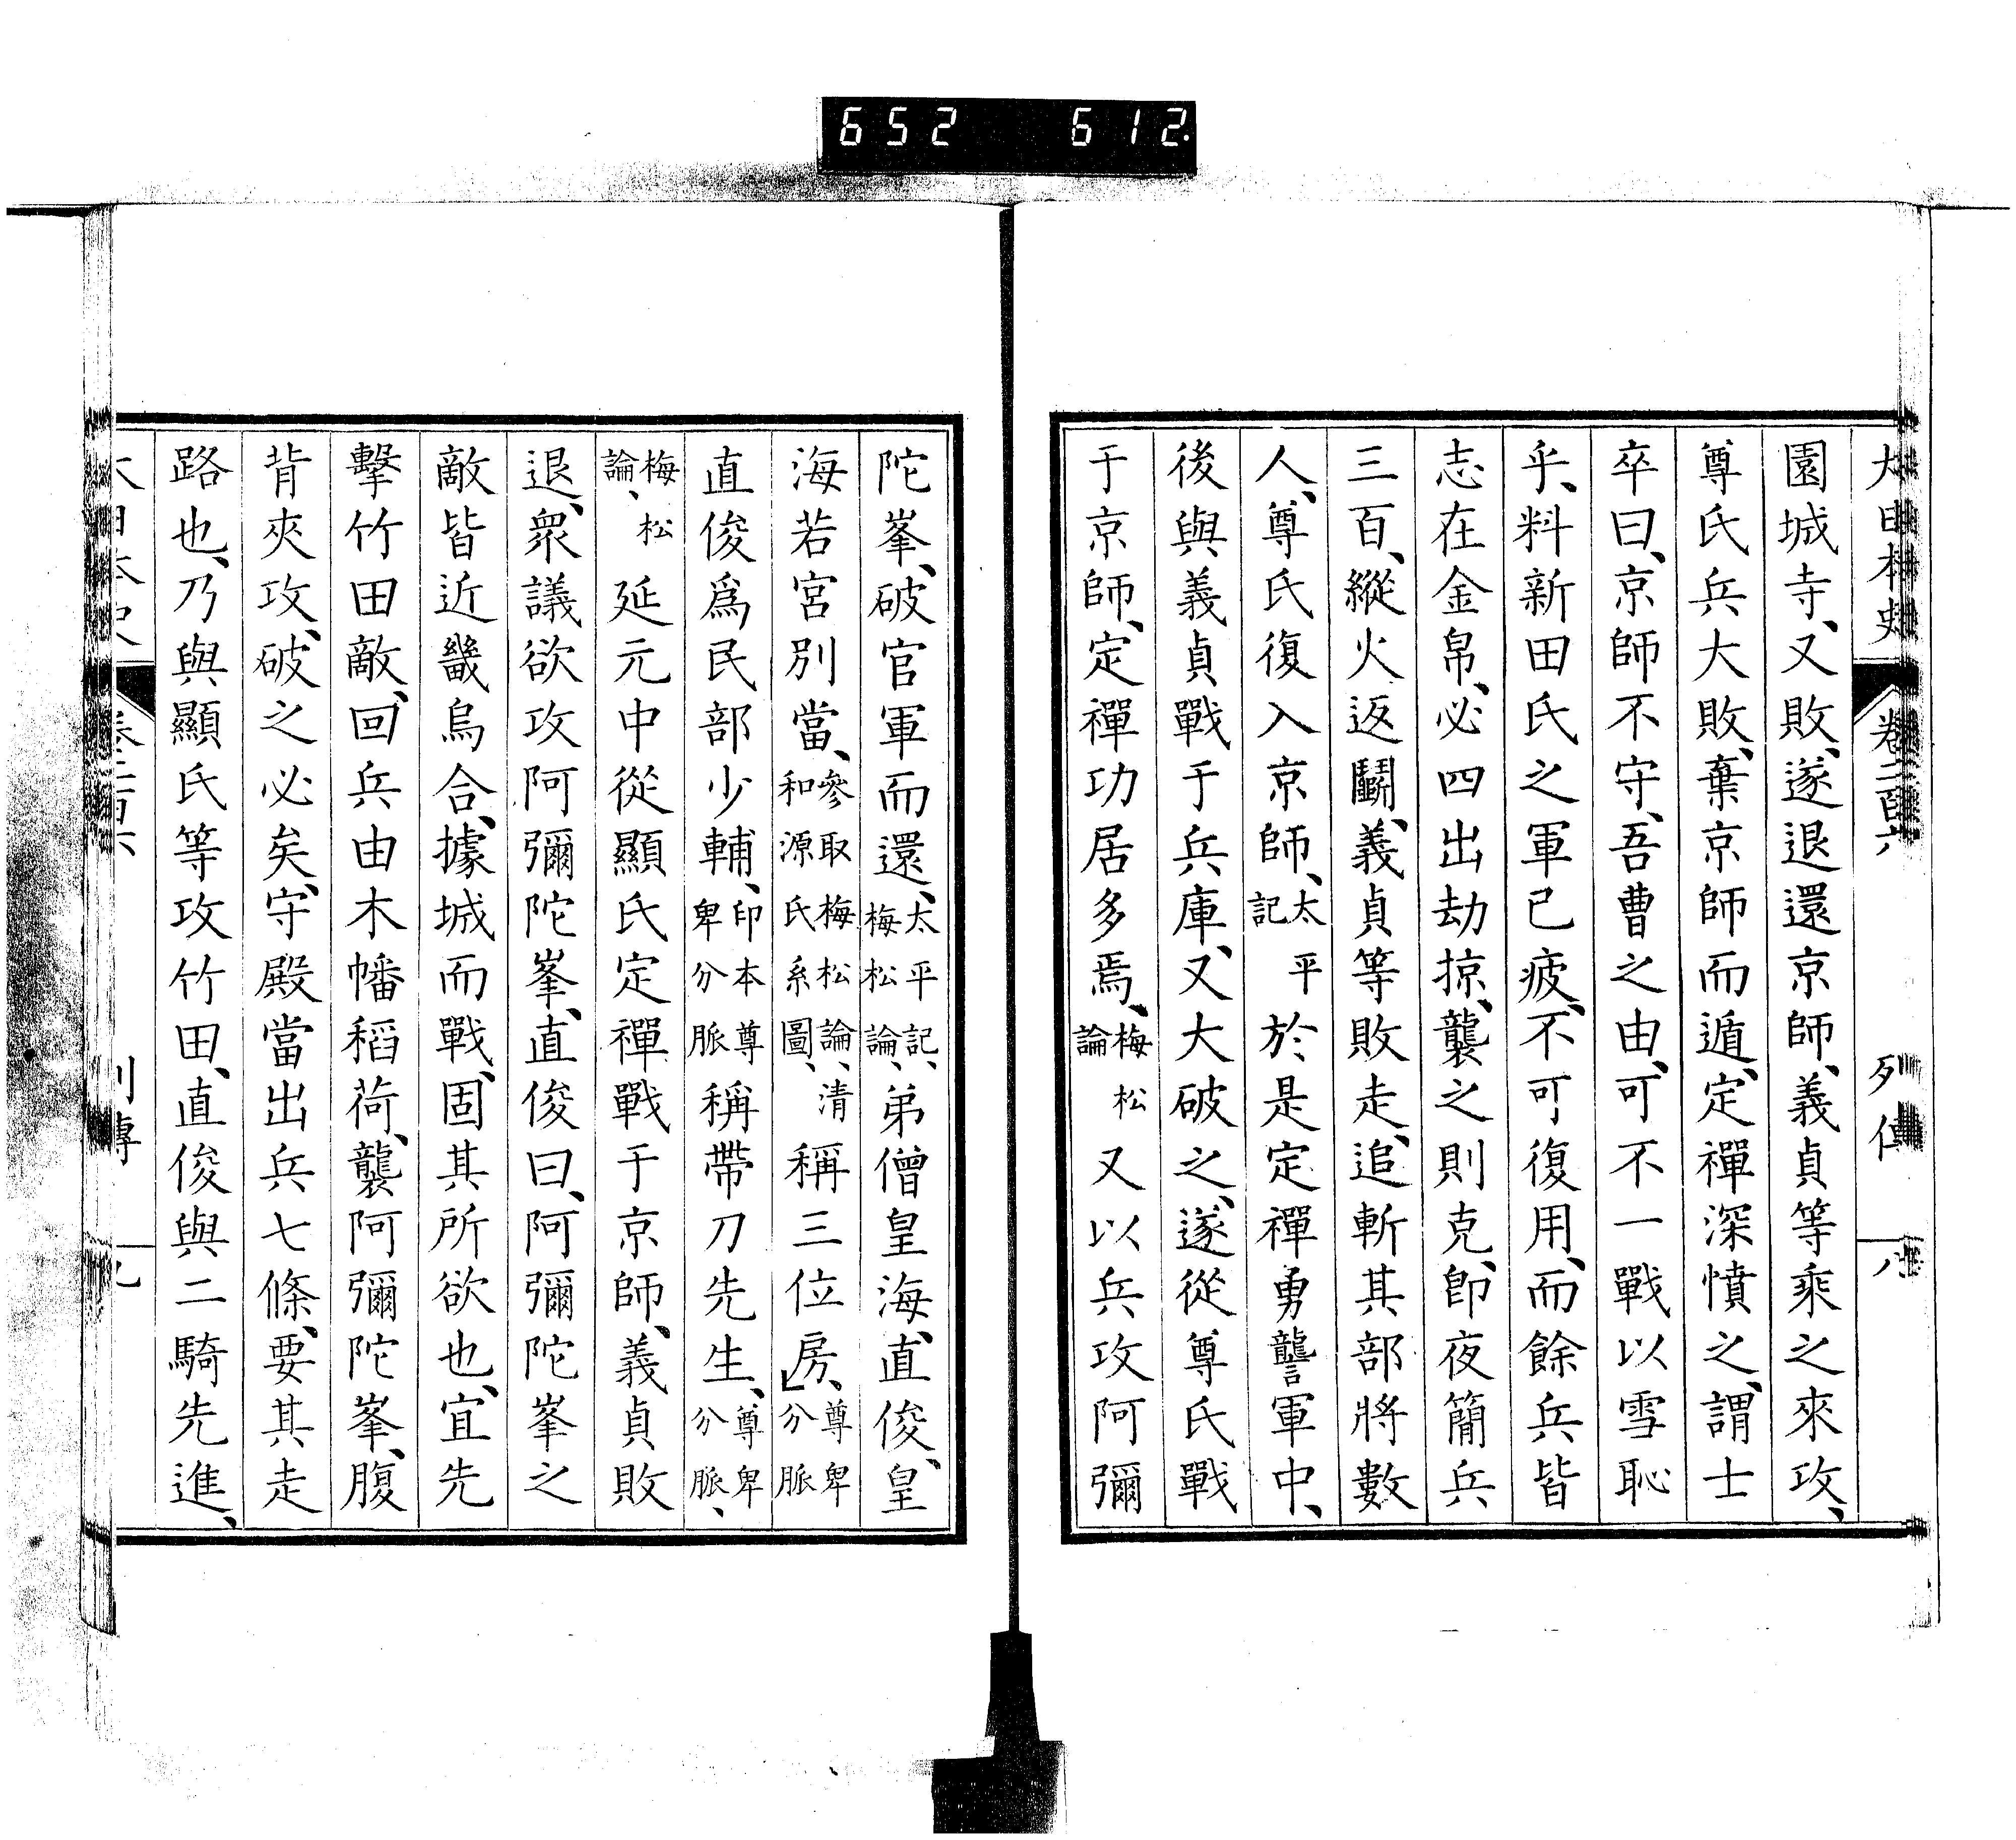 652 612
大日本史 卷二百六 列傳 八
園城寺、又敗、遂退還京師、義貞等乘之來攻、
尊氏兵大敗、棄京師而遁、定禪深憤之、謂士
卒曰、京師不守、吾曹之由、可不一戰以雪恥
乎、料新田氏之軍已疲、不可復用、而餘兵皆
志在金帛、必四出劫掠、襲之則克、卽夜簡兵
三百、縱火返鬭、義貞等敗走、追斬其部將數
人、尊氏復入京師、太平記 於是定禪勇讋軍中、
後與義貞戰于兵庫、又大破之、遂從尊氏戰
于京師、定禪功居多焉、梅松論 又以兵攻阿彌
陀峯、破官軍而還、太平記、梅松論、弟僧皇海、直俊、皇
海若宮別當、參取梅松論、清和源氏系圖、稱三位房、尊卑分脈
直俊爲民部少輔、印本尊卑分脈 稱帶刀先生、尊卑分脈、
梅松論、延元中從顯氏定禪戰于京師、義貞敗
退、衆議欲攻阿彌陀峯、直俊曰、阿彌陀峯之
敵皆近畿烏合、據城而戰、固其所欲也、宜先
擊竹田敵、回兵由木幡稻荷、襲阿彌陀峯、腹
背夾攻、破之必矣、守殿當出兵七條、要其走
路也、乃與顯氏等攻竹田、直俊與二騎先進、
大日本史 卷二百六 列傳 九